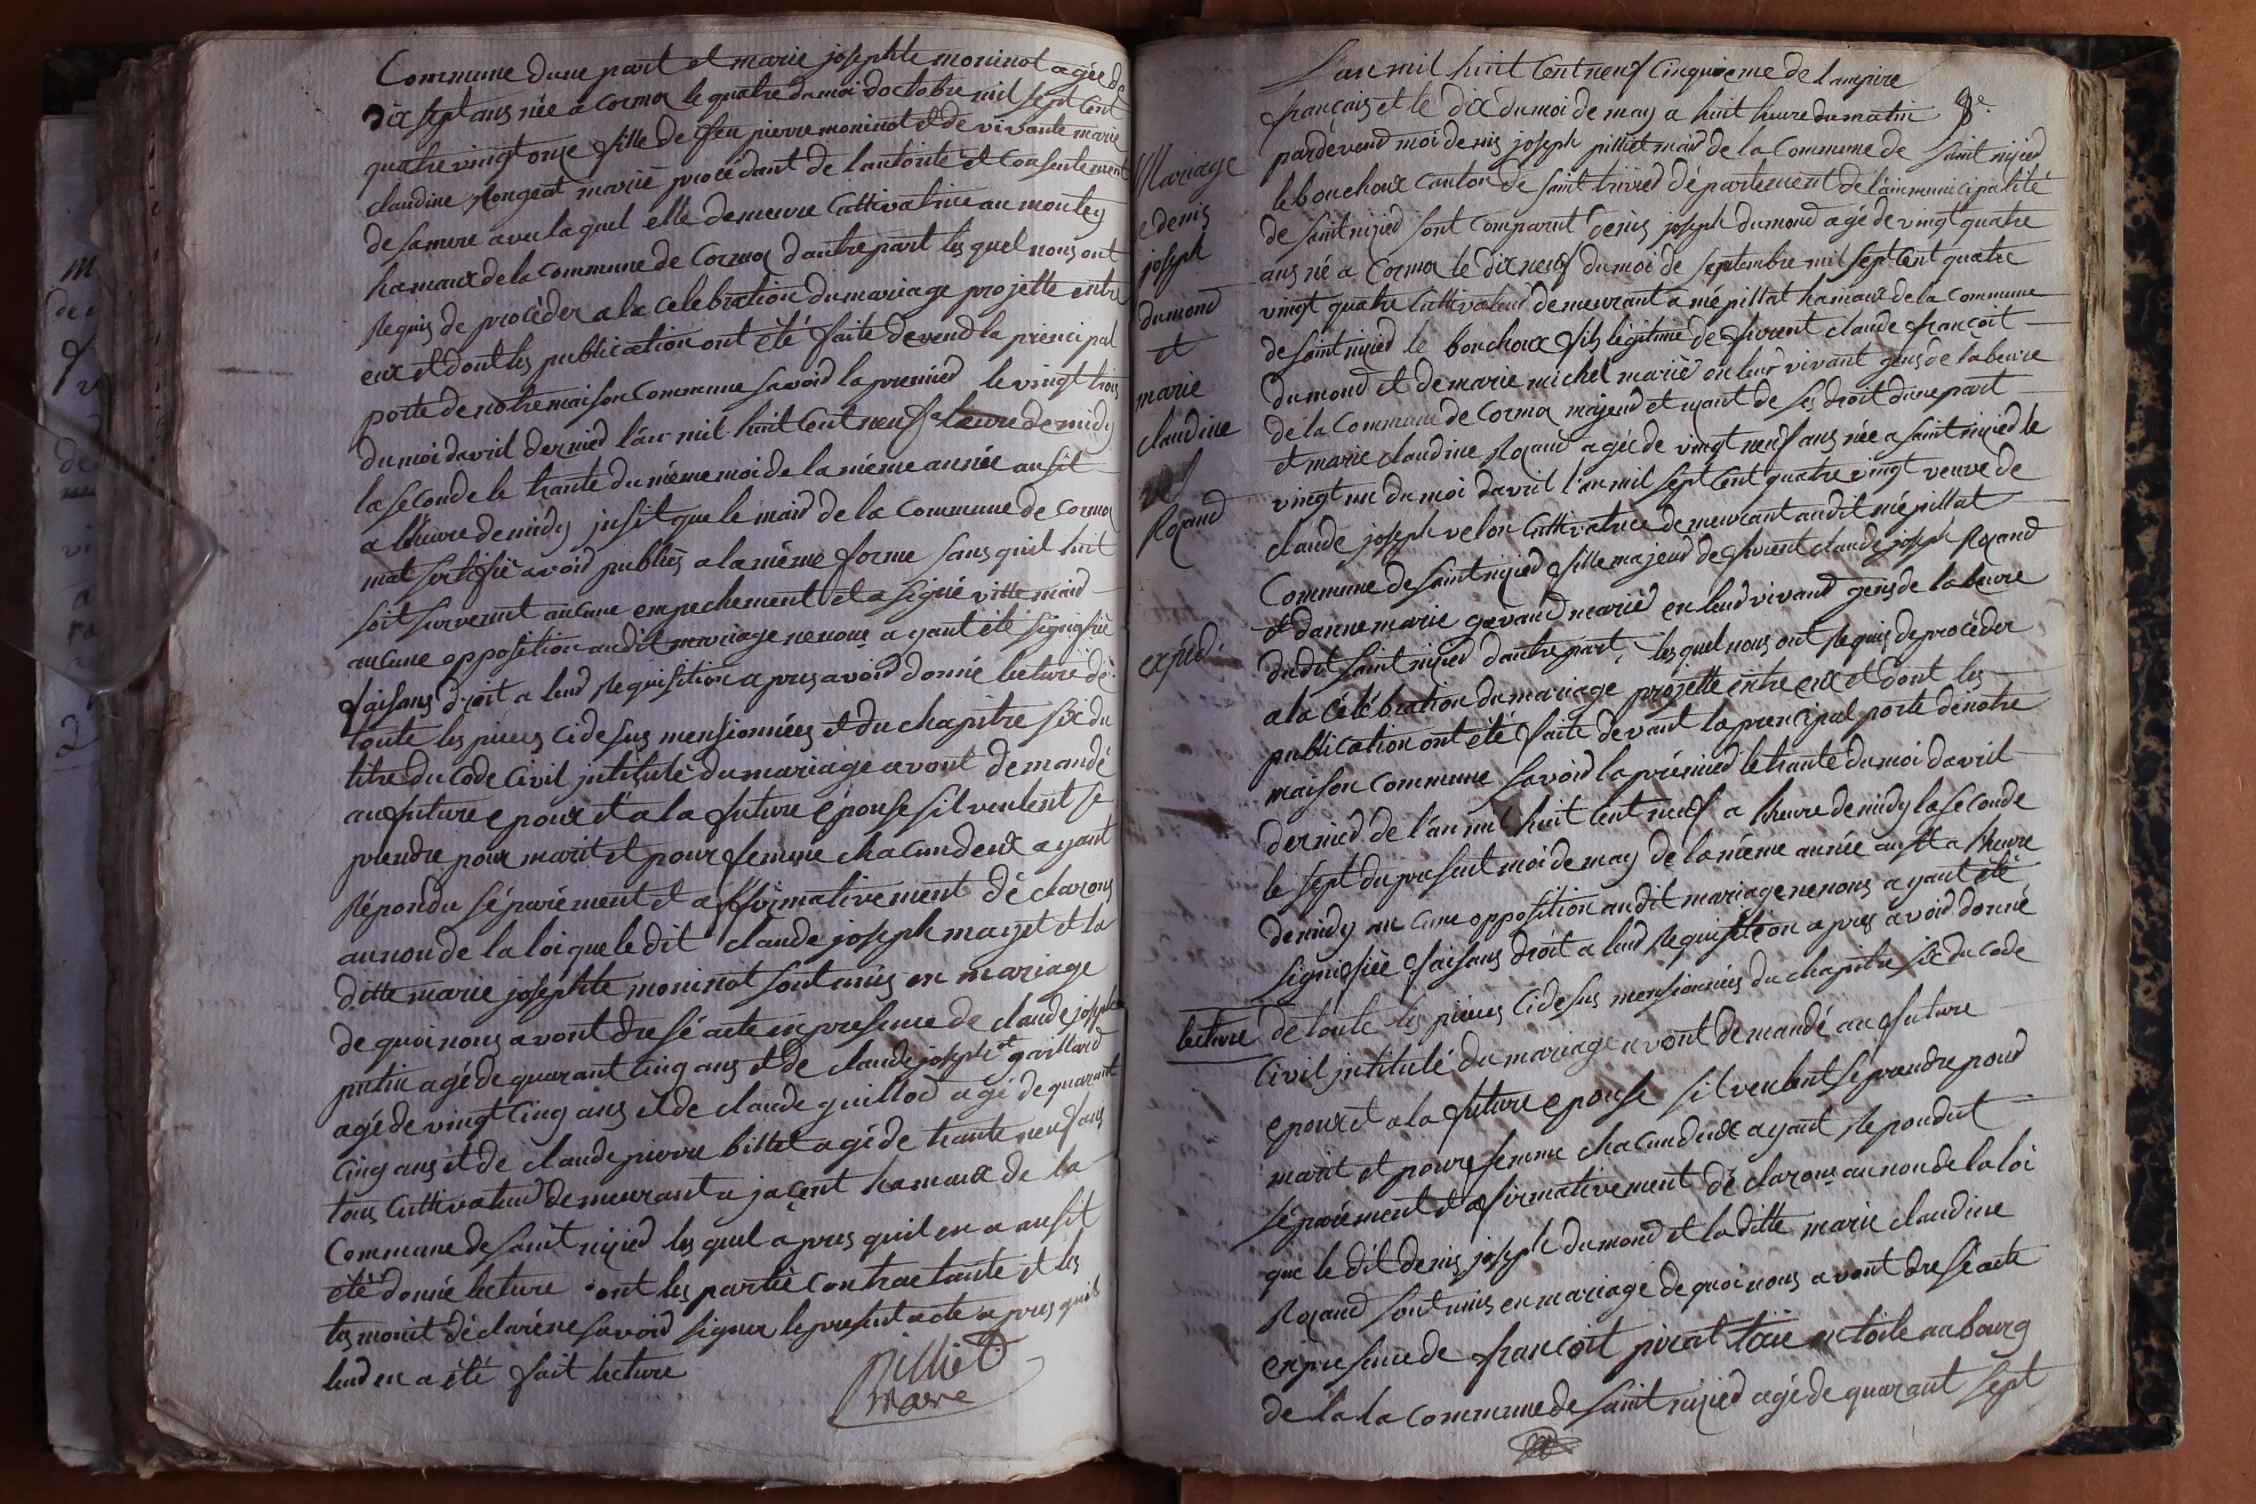 Commune dune part et marie josephte moninot agée de
dix sept ans née a cormoz le quatre du moi doctobre mil sept cent
quatre vingt onze fille de feu pierre moninot et de vivante marie
claudine rongeat mariè procédant de lautorité et consentement
de sa mere avec laquel elle demeure Cultivatrice au montey
hamaux de la commune de Cormoz dautre part les quel nous ont
Requis de procèder a la celebration du mariage projette entre
eux et dont les publication ont été faite devend la principal
porte de notre maison commune savoid la premied le vingt trois
du moi davril dernied l'an mil huit Cent neuf a leure de midy
la seconde le trante du même moi de la même année ausit
a lheure de midy jusit que le maid de la Commune de Cormoz
mat sertifiè avoid publiés a la même forme sans quil luit
soit survenut aucune empechement et a signé vitte maid
aucune opposition audit mariage ne nous a yant été signifiè
faisans droit a leud Requisition apres avoid donné lecture de
toute les pieces cidesus mensionnées et du chapitre six du
titre du Code Civil jntitulé du mariage avont demandé
au future epoux et a la future épouse sil veulent se
prendre pour marit et pour femme chacundeux ayant
Répondu séparément et affirmativement déclarons
au non de la loi que le dit claude joseph mayet et la
ditte marie josephte moninot sont unis en mariage
de quoi nous avont dresé acte en presence de claude joseph
putin agé de quarant cinq ans et de claude joseph gaillard
agé de vingt cinq ans et de claude guillod agé de quarant
cinq ans et de claude pierre billet agé de trante neuf ans
tous Cultivateud demeurant a jacent hamaux de la
Commune de saint nizied les quel apres quil en a ausit
été donné lecture ont les partie contractante et les
tesmoint déclaré ne savoid signer le present acte apres quil
leud en a été fait lecture
Pilliet
Mare
Lan mil huit Cent neuf cinquieme de lampire
français et le dix du moi de may a huit heure du matin
8e.
pardevend moi denis joseph pilliet maid de la Commune de saint nizied
le bouchoux canton de saint trivied département de lain municipalité
de saint nizied sont comparut denis joseph dumond agé de vingt quatre
ans né a Cormoz le dix neuf du moi de septembre mil sept Cent quatre
vingt quatre Cultivateud demeurant a mépillat hamaux de la commune
de saint nizied le bouchoux fils légitime de furent claude françoit
dumond et de marie michel mariè en leur vivant gens de labeure
de la Commune de Cormoz majeud et usant de ses droit dune part
et marie claudine Rozand agée de vingt neuf ans née a saint nizied le
vingt un du moi davril l'an mil sept Cent quatre vingt veuve de
claude joseph velon Cultivatrice demeurant audit mépillat
Commune de saint nizied fille majeud de furent claude joseph Rozand
et danne marie gavand mariéd en leud vivand gens de labeure
dudit saint nizied dautre part, les quel nous ont Requis de procèder
a la célébration du mariage projette entre eux et dont les
publication ont été faite devant la principal porte de notre
maison commune savoid la prémied le trante du moi davril
dernied de l'an mil huit cent neuf a heure de midy la seconde
le sept du present moi de may de la même année ausit a lheure
de midy au cune opposition audit mariage ne nous a yant été
signifiée faisans droit a leud Requisition apres avoid donné
lecture de toute les pieces cidesus mensionnées du chapitre six du code
Civil jntitulé du mariage avont demandé au future
epoux et a la future epouse sil veulent se prendre poud
marit et poure femme chacundeux ayant Repondut
séparément et afirmativement déclarons au non de la loi
que le dit denis joseph dumond et la ditte marie claudine
Rozand sont unis en mariage de quoi nous avont dresé acte
en presence de françoit pirat taie en toile au bourg
de la la commune de saint nizied agé de quarant sept
Mariage
e denis
joseph
dumond
et
marie
claudine
Rozand
expéd.